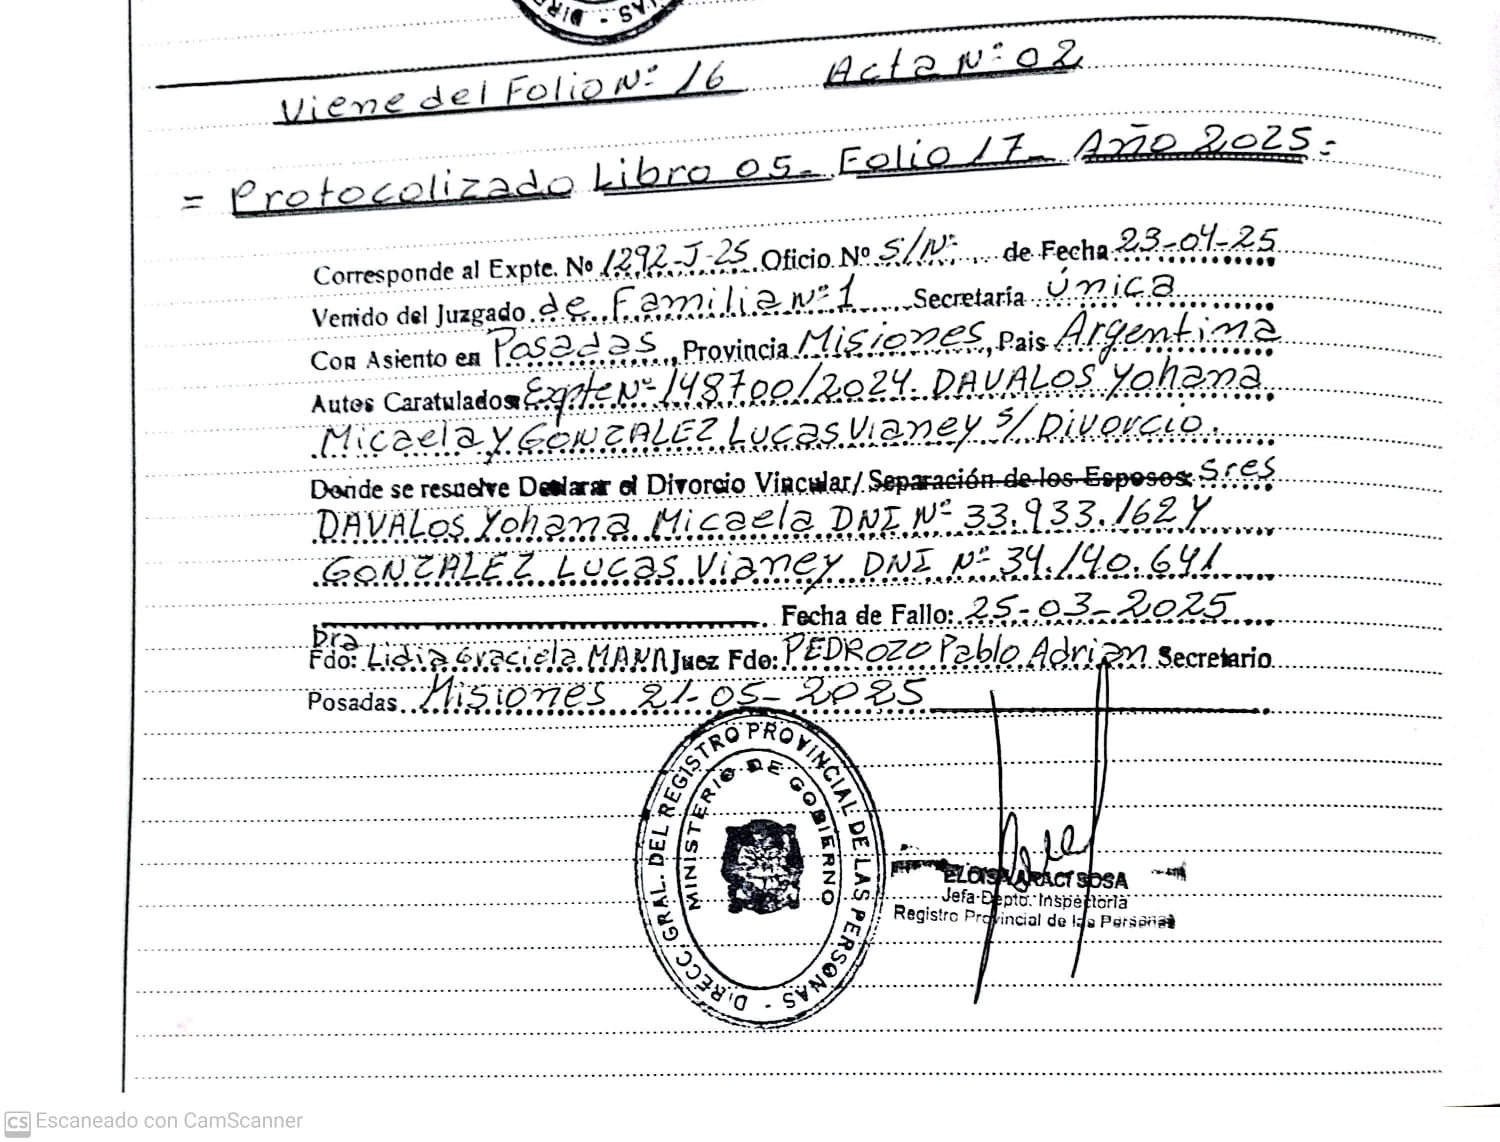 DIRECC. GRAL. DEL REGISTRO PROVINCIAL DE LAS PERSONAS -
Viene del Folio Nº 16 Acta Nº 02
= Protocolizado Libro 05_ Folio 17_ Año 2025.=
Corresponde al Expte. Nº 1292-J-25 Oficio Nº S/Nº de Fecha 23-04-25
Venido del Juzgado de Familia Nº 1 Secretaría Única
Con Asiento en Posadas, Provincia Misiones, Pais Argentina
Autos Caratulados: Expte Nº 148700/2024. DAVALOS Yohana
Micaela y GONZALEZ Lucas Vianey s/ Divorcio.
Donde se resuelve Declarar el Divorcio Vincular/ Separación de los Esposos: Sres
DAVALOS Yohana Micaela DNI Nº 33.933.162 Y
GONZALEZ Lucas Vianey DNI Nº 34.140.641
Fecha de Fallo: 25-03-2025
Dra
Fdo: Lidia Graciela Juez Fdo: PEDROZO Pablo Adrian Secretario
Posadas Misiones 21-05-2025
DIRECC. GRAL. DEL REGISTRO PROVINCIAL DE LAS PERSONAS -
MINISTERIO DE GOBIERNO
ELOISA ARACI SOSA
Jefa Depto. Inspectoria
Registro Provincial de las Personas
CS Escaneado con CamScanner